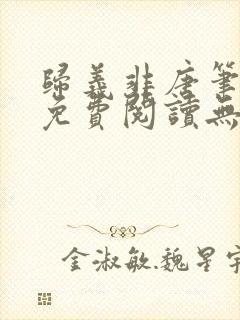 歸義非唐筆
免費閱讀無
金淑敏.魏星宇